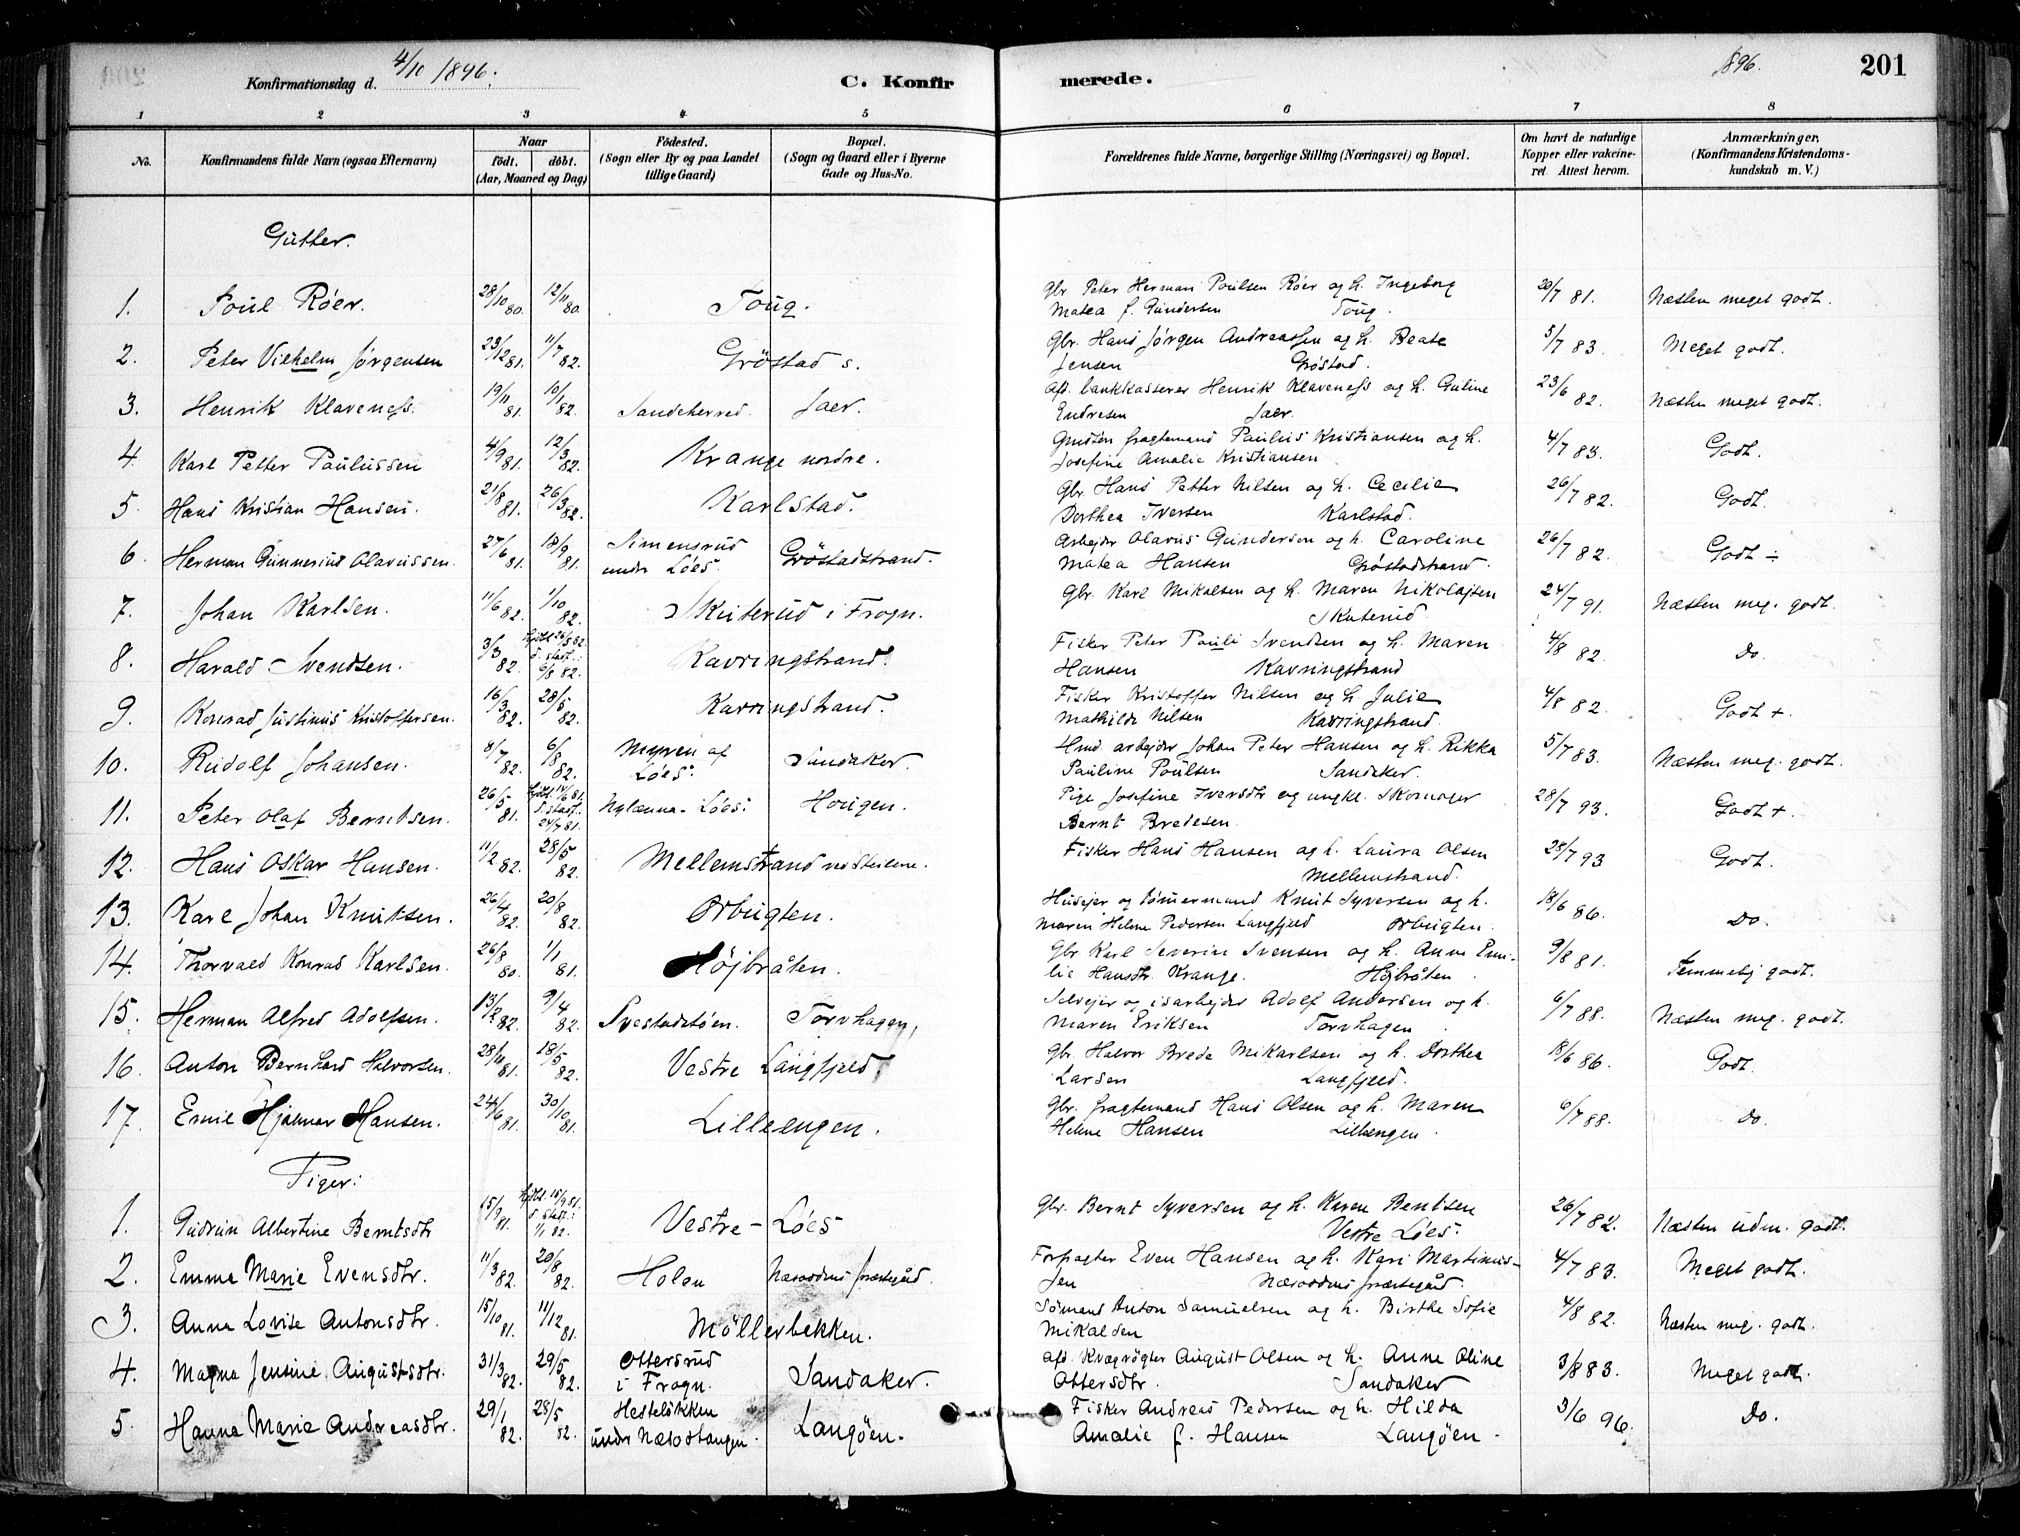 Konfirmationsdag d. 4/10 1896.
C. Konfirmerede.
1896.
201
1 2 3 4 5 6 7 8
No.
Konfirmandens fulde Navn (ogsaa Efternavn)
Naar
födt. döbt.
(Aar, Maaned og Dag)
Födested.
(Sogn eller By og paa Landet
tillige Gaard)
Bopæl.
(Sogn og Gaard eller i Byerne
Gade og Hus-No.
Forældrenes fulde Navne, borgerlige Stilling (Næringsvei) og Bopæl.
Om havt de naturlige
Kopper eller vakcine-
ret. Attest herom.
Anmærkninger.
(Konfirmandens Kristendoms-
kundskab m. V.)
Gutter.
1. Poul Röer. 28/10 80. 12/11 80. Toug. Gbr. Peter Herman Poulsen Röer og h. Ingeborg 20/7 81. Næsten meget godt.
Matea f. Gundersen Toug.
2. Peter Vilhelm Jørgensen 23/12 81. 11/7 82. Gröstad s. Gbr. Hans Jørgen Andreassen og h. Beate 5/7 83. Meget godt.
Jensen Grøstad.
3. Henrik Klaveness. 19/11 81. 10/1 82. Sandeherred. Jaer. Afd. bankkasserer Henrik Klaveness og h. Guline 23/6 82. Næsten meget godt.
Endresen Jaer.
4. Karl Petter Paulussen 4/9 81. 12/3 82. Krange nordre. fragtemand Paulus Kristiansen og h. 4/7 83. Godt.
Josefine Amalie Kristiansen
5. Hans Kristian Hansen. 21/8 81. 26/3 82. Karlstad. Gbr. Hans Petter Nilsen og h. Cecilie 26/7 82. Godt.
Dorthea Iversen Karlstad.
6. Herman Gunnerius Olavussen. 27/6 81. 18/9 81. Simensrud
under Löes. Gröstadstrand. Arbejder Olavus Gunderson og h. Caroline 26/7 82. Godt ÷
Matea Hansen Grøstadstrand.
7. Johan Karlsen. 11/6 82. 1/10 82. Skuterud i Frogn. Gbr. Karl Mikalsen og h. Maren Nikolajsen 24/7 91. Næsten meg. godt.
Skuterud
8. Harald Svendsen. 3/3 82. hjdbt 26/3 82. d. stadf.: 6/8 82. Kavringstrand. Fisker Peter Pauli Svendsen og h. Maren 4/8 82. Do.
Hansen Kavringstrand
9. Konrad Justinus Kristoffersen. 16/3 82. 28/5 82. Kavringstrand. Fisker Kristoffer Nilsen og h. Julie 4/8 82. Godt +.
Mathilde Nilsen Kavringstrand
10. Rudolf Johansen. 8/7 82. 6/8 82. Myren af
Löes. Sandaker. Hmd. arbejder Johan Peter Hansen og h. Rikka 5/7 83. Næsten meg. godt.
Pauline Poulsen Sandaker.
11. Peter Olaf Berntsen. 26/5 81. d. stadf.: 24/7 81. Nylænna - Löes: Hougen. Pige Josefine Iversdtr og ungkl. Skomager 28/7 93. Godt +.
Bernt Bredesen.
12. Hans Oskar Hansen. 11/2 82. 28/5 82. Mellemstrand ved Steilene. Fisker Hans Hansen og h. Laura Olsen 28/7 93 Godt.
Mellemstrand.
13. Karl Johan Knutsen. 26/4 82. 20/8 82. Orbugten. Husejer og tömmermand Knut Syversen og h. 18/6 86. Do.
Maren Helene Pedersen Langfjeld Orbugten.
14. Thorvald Konrad Karlsen. 26/8 80. 1/1 81. Höjbråten. Gbr. Karl Severin Svensen og h. Anne Emi- 9/8 81. Temmelig godt.
lie Hansdtr. Krange. Höjbråten.
15. Herman Alfred Adolfsen. 13/2 82. 9/4 82. Svestadstöen. Torvhagen. Selvejer og isarbejder Adolf Andersen og h. 6/7 88. Næsten meg. godt.
Maren Eriksen Torvhagen.
16. Anton Bernhard Halvorsen. 28/11 81. 18/5 82. Vestre Langfjeld. Gbr. Halvor Brede Mikarlsen og h. Dorthea 18/6 86. Godt.
Larsen Langfjeld.
17. Emil Hjalmar Hansen. 24/6 81. 30/10 81. Lilleengen. Gbr. fragtemand Hans Olsen og h. Maren 6/7 88. Do.
Helene Hansen Lilleengen.
Piger:
1. Gudrun Albertine Berntsdtr 15/9 81. hjdbt. 15/9 81. d. stadf.: 1/1 82. Vestre - Löes Gbr. Bernt Syversen og h. Karen Bentsen 26/7 82. Næsten udm. godt.
Vestre Löes.
2. Emma Marie Evensdtr. 11/3 82. 20/8 82. Holen Næsoddens præstegård. Forpagter Even Hansen og h. Kari Martinus- 4/7 83. Meget godt.
sen Næsoddens præstegård.
3. Anna Lovise Antonsdtr. 15/10 81. 11/12 81. Möllerbekken. Sömand Anton Samuelsen og h. Birthe Sofie 4/8 82. Næsten meg. godt.
Mikalsen
4. Magna Jensine Augustsdtr. 31/3 82. 29/5 82. Ottersrud
i Frogn. Sandaker. Afd. Kvægrögter August Olsen og h. Anne Oline 3/8 83. Meget godt.
Ottersdtr. Sandaker
5. Hanna Marie Andreasdtr. 29/1 82. 28/5 82. Hesteløkken
under Næsodtangen. Langöen. Fisker Andreas Pedersen og h. Hilda 3/6 96. Do.
Amalie f. Hansen Langöen.